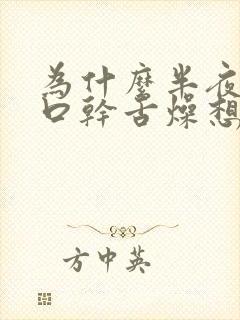 為什麼半夜
口幹舌燥想
方中英